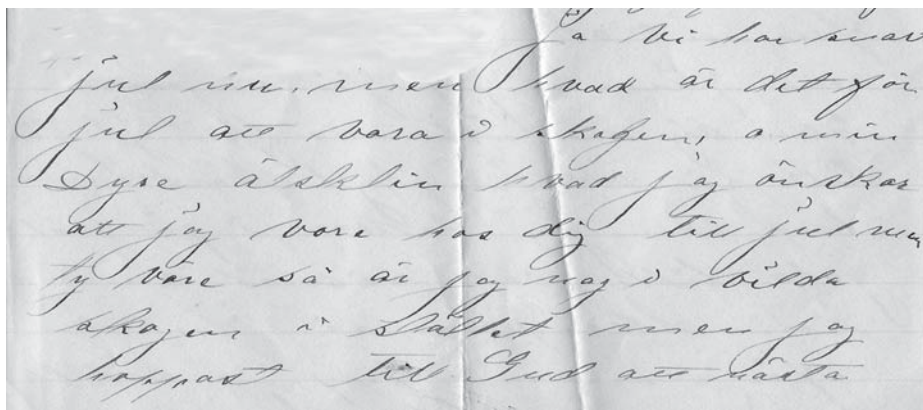 ja vi har snar
jul nu, men hvad är det för
jul att vara i skogen, o min
Dyre älsklin hvad jag önskar
att jag vore hos dig till jul men
ty väre så är jag nog i vilda
skogen i stället men jag
hoppast till Gud att nästa